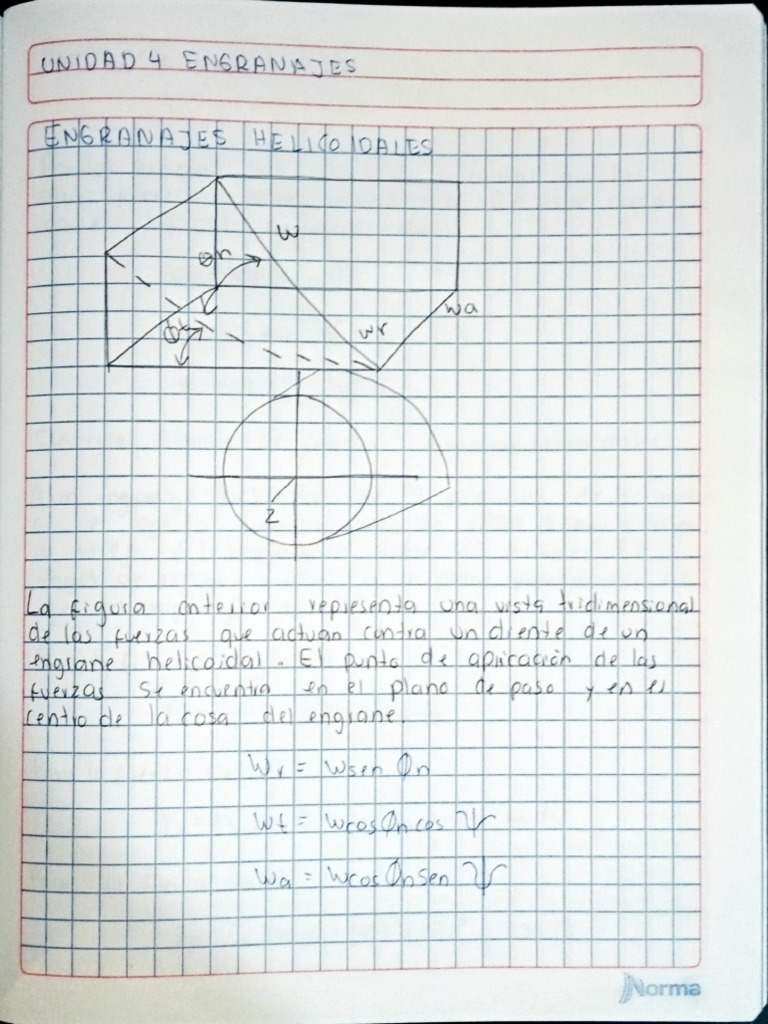 UNIDAD 4 ENGRANAJES
ENGRANAJES HELICOIDALES
W
Øn
Wr
Wa
Øt
Z
La figura anterior representa una vista tridimensional
de las fuerzas que actuan contra un diente de un
engrane helicoidal. El punto de aplicación de las
fuerzas se encuentra en el plano de paso y en el
centro de la cosa del engrane.
Wr = Wsen Øn
Wt = WcosØncos Ψ
Wa = WcosØnSen Ψ
Norma